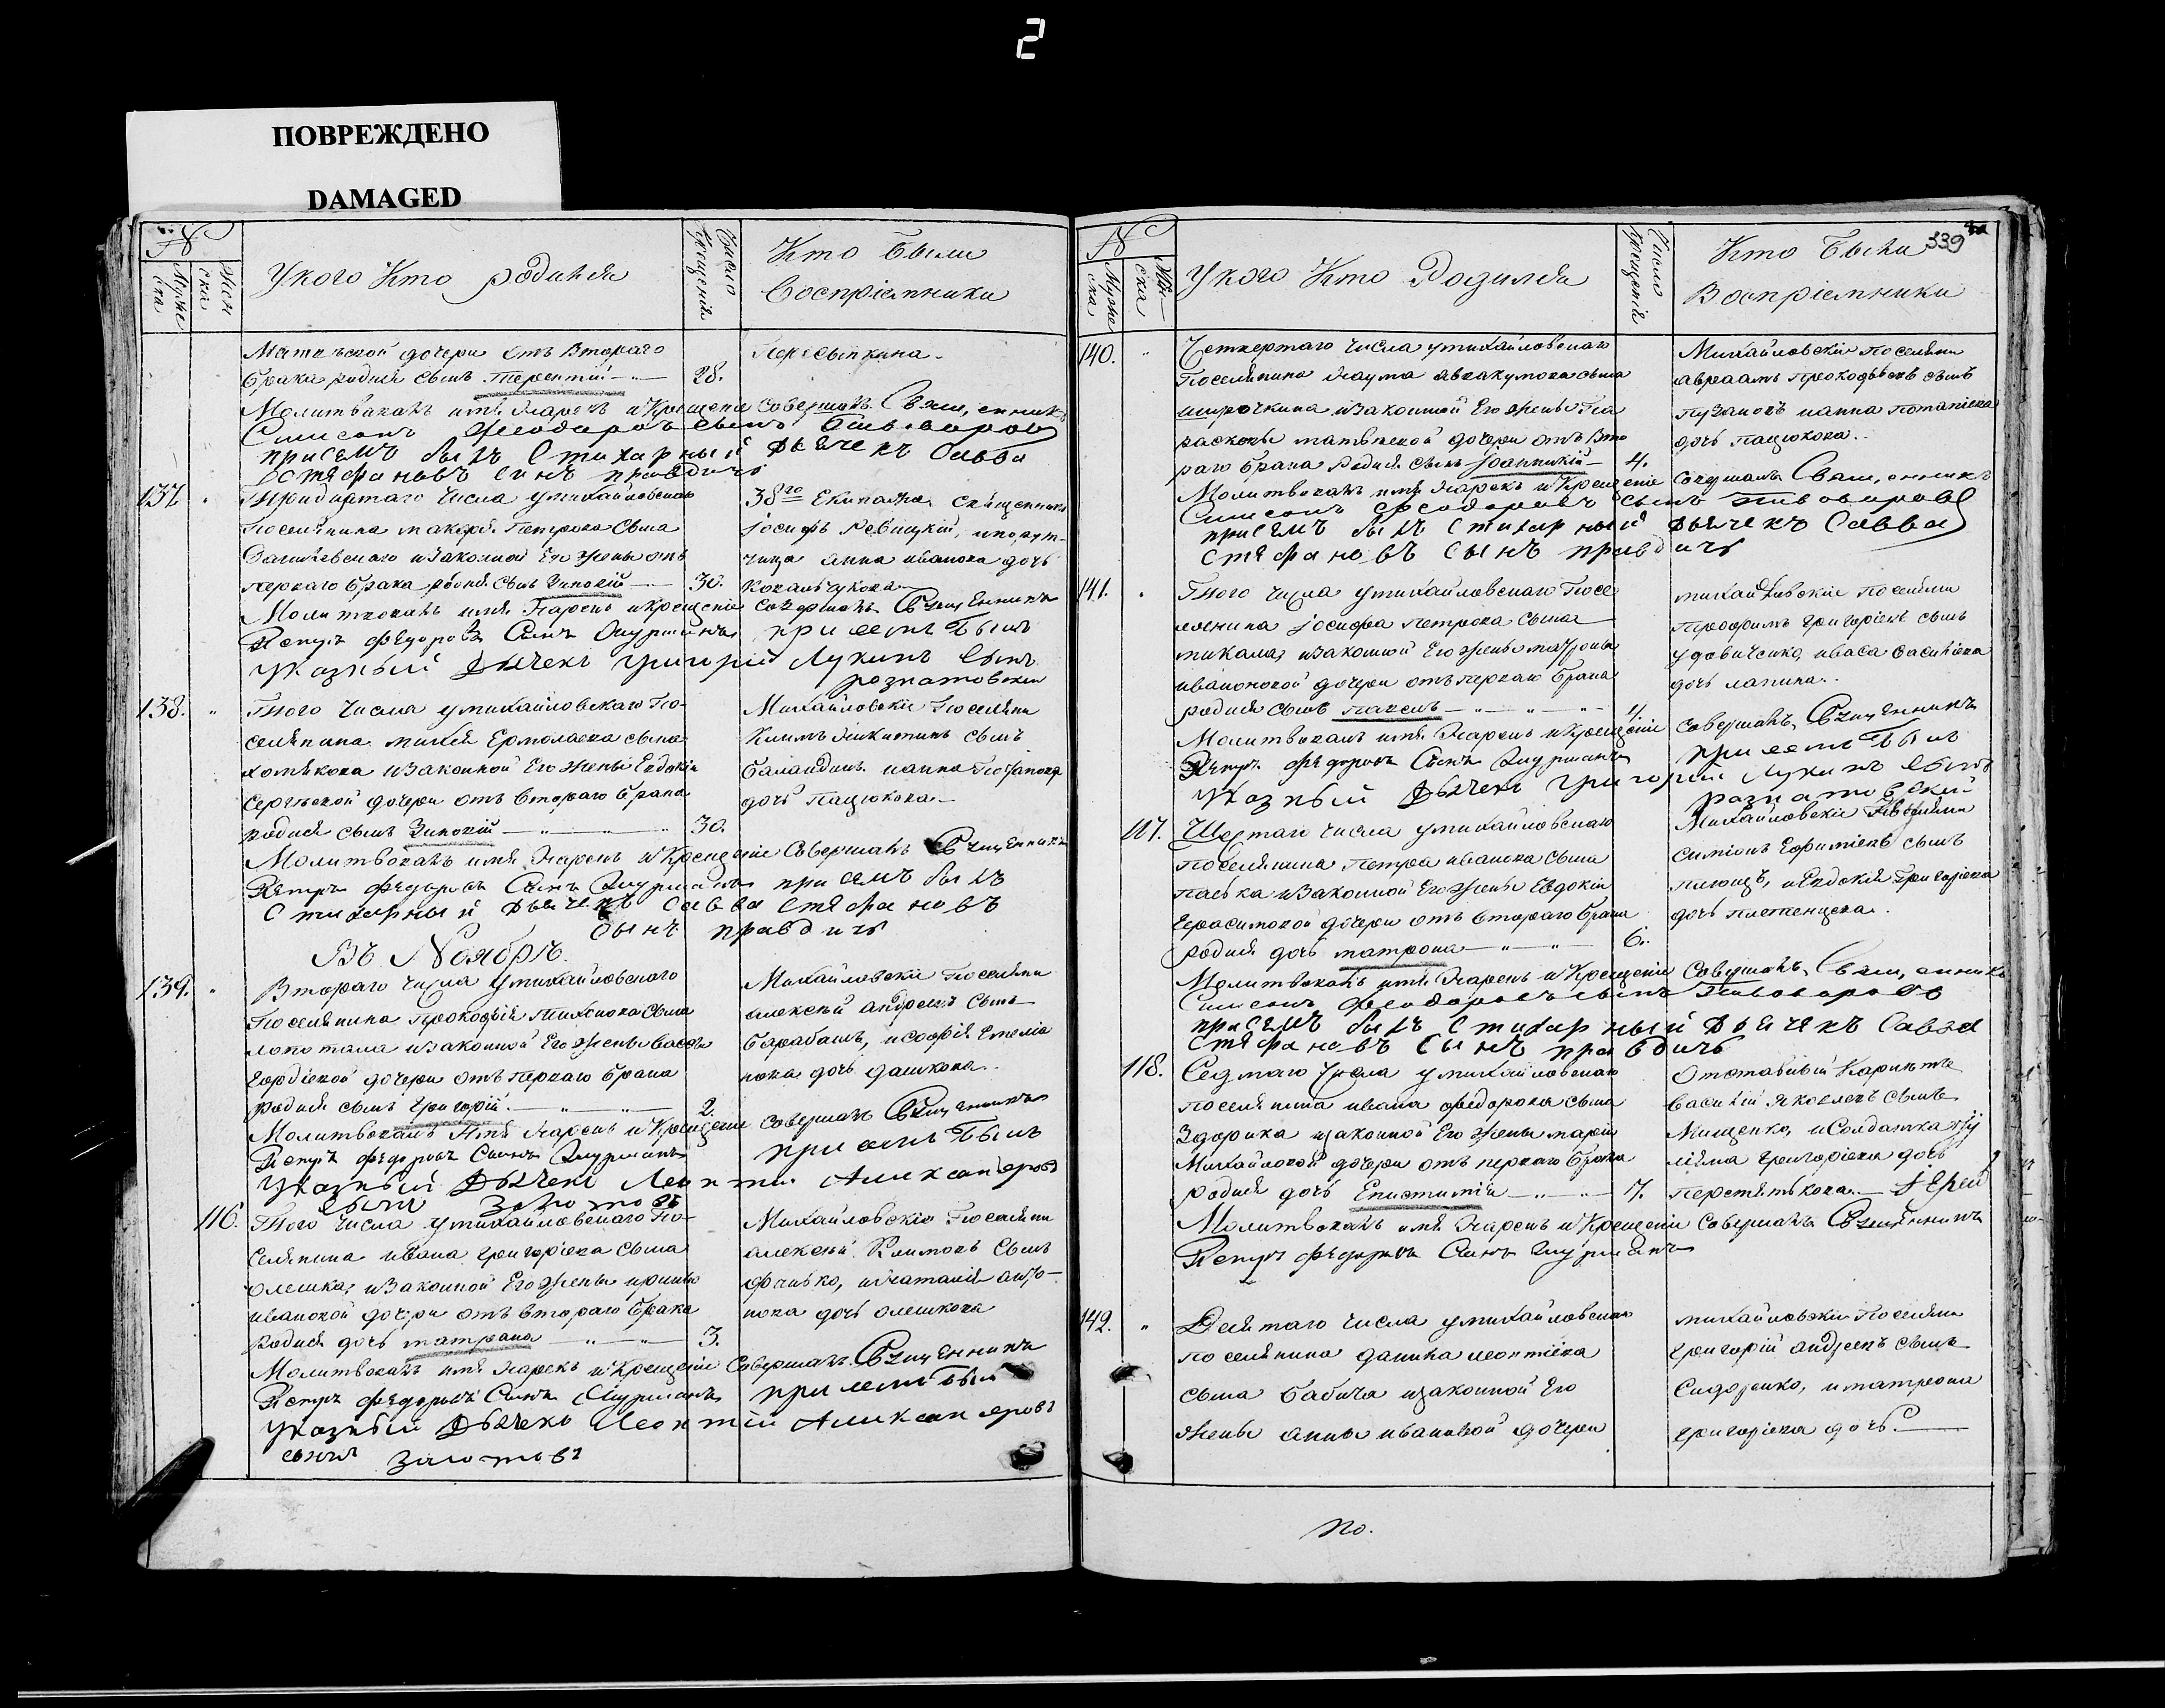 2
ПОВРЕЖДЕНО
DAMAGED
№
Муже
ска
Жен
ска
У кого Кто родился
Число
Крещенія
Кто были
Воспріемники
дочери отъ втораго
брака родился сынъ Терентій
28.
Пересыпкина.
Молитвовалъ имя нарекъ и Крещеніе совершалъ Священникъ
Симеонъ Феодоровъ сынъ
присемъ былъ Стихарный Дьячекъ Савва
Стефановъ сынъ правдичъ
137.
Тридцатаго числа у михайловскаго
поселянина Петрова сына
и законной Его жены отъ
перваго брака родился сынъ Зиновій
30.
38го Екипажа священникъ
Іосифъ Левицкій, и порут-
чица анна иванова дочь
Ковальчукова
Молитвовалъ имя нарекъ и крещеніе совершалъ Священникъ
Петръ Федоровъ Сынъ при семъ былъ
Указный Дьячекъ григорій Лукинъ сынъ
розматовскій
138.
Того числа у михайловскаго по-
селянина михея Ермолаева сына
хомякова и законной Его жены Евдокіи
Сергѣевой дочери отъ втораго брака
родился сынъ Зиновій
30.
Михайловскіе поселяни
Климъ Никитинъ сынъ
баландинъ и анна Потапова
дочь Пацюкова.
Молитвовалъ имя нарекъ и Крещеніе Совершалъ Священникъ
Петръ Федоровъ Сынъ при семъ былъ
Стихарный Дьячекъ Савва Стефановъ
сынъ правдичъ
Въ Ноябрѣ.
139.
Втораго числа у михайловскаго
поселянина Прокофія Тихонова сына
лопотана и законной Его жены Вассы
Гордіевой дочери отъ перваго брака
родился сынъ григорій.
2.
Михайловскіе поселяни
алексей андреевъ сынъ
барабашъ, и софія Емеліа
нова дочь дашкова..
Молитвовалъ Имя нарекъ и Крещеніе совершалъ Священникъ
Петръ Федоровъ Сынъ при семъ былъ
Указный Дьячекъ Леонтій Александровъ
сынъ Золотовъ
116.
Того числа у михайловскаго по-
селянина ивана григоріева сына
олешка, и законной Его жены ирины
ивановой дочери отъ втораго брака
родися дочь матрона
3.
Михайловскіе поселяни
алексей Климовъ сынъ
и наталія анто-
нова дочь олешкова
Молитвовалъ имя нарекъ и Крещеніе Совершалъ Священникъ
Петръ Федоровъ Сынъ при семъ былъ
Указный Дьячекъ Леонтій Александровъ
сынъ Золотовъ
339
№
Муже
ска
Жен
ска
У кого Кто Родился
Число
Крещенія
Кто Были
Воспріемники
140.
Четвертаго числа у михайловскаго
поселянина Наума авакумова сына
широчкина и законной Его жены Па
расковьи дочери отъ вто
раго брака родился сынъ Іоанникій
4.
Михайловскіе поселяни
авраамъ прокофьевъ сынъ
пузановъ и анна потапіева
дочь пацюкова..
Молитвовалъ имя нарекъ и Крещеніе Совершалъ Священникъ
Симеонъ Феодоровъ сынъ
присемъ былъ Стихарный Дьячекъ Савва
Стефановъ сынъ правдичъ
141.
Того числа у михайловскаго Посе
лянина Іосифа петрова сына
и законной Его жены матроны
ивановской дочери отъ перваго брака
родился сынъ Павелъ
4.
михайловскіе поселяни
Трофимъ григоріевъ сынъ
удовиченко, и васа василіева
дочь лапина..
Молитвовалъ имя нарекъ и Крещеніе совершалъ Священникъ
Петръ Федоровъ Сынъ при семъ былъ
Указный Дьячекъ григорій Лукинъ сынъ
розматовскій
117.
Шестаго числа у михайловскаго
поселянина Петра иванова сына
и законной Его жены Евдокіи
Герасимовой дочери отъ втораго брака
родися дочь матрона
6.
Михайловскіе поселяни
симіонъ Ефиміевъ сынъ
и Евдокія Григоріева
дочь
Молитвовалъ имя нарекъ и Крещеніе Совершалъ Священникъ
Симеонъ Феодоровъ сынъ
присемъ былъ Стихарный Дьячекъ Савва
Стефановъ сынъ правдичъ
118.
Седмаго числа у михайловскаго
поселянина ивана федорова сына
и законной Его жены маріи
Михайловой дочери отъ перваго брака
родися дочь Епистимія
7.
Отставный
василій Яковлевъ сынъ
Мищенко, и Солдатка
григоріева дочь
Іерей
Молитвовалъ имя нарекъ и Крещеніе совершалъ Священникъ
Петръ Федоровъ Сынъ
142.
Девятаго числа у михайловскаго
поселянина данила леонтіева
сына бабича и законной Его
жены анны ивановой дочери
михайловскіе поселяни
григорій андреевъ сынъ
Сидоренко, и матрона
григоріева дочь.
по.